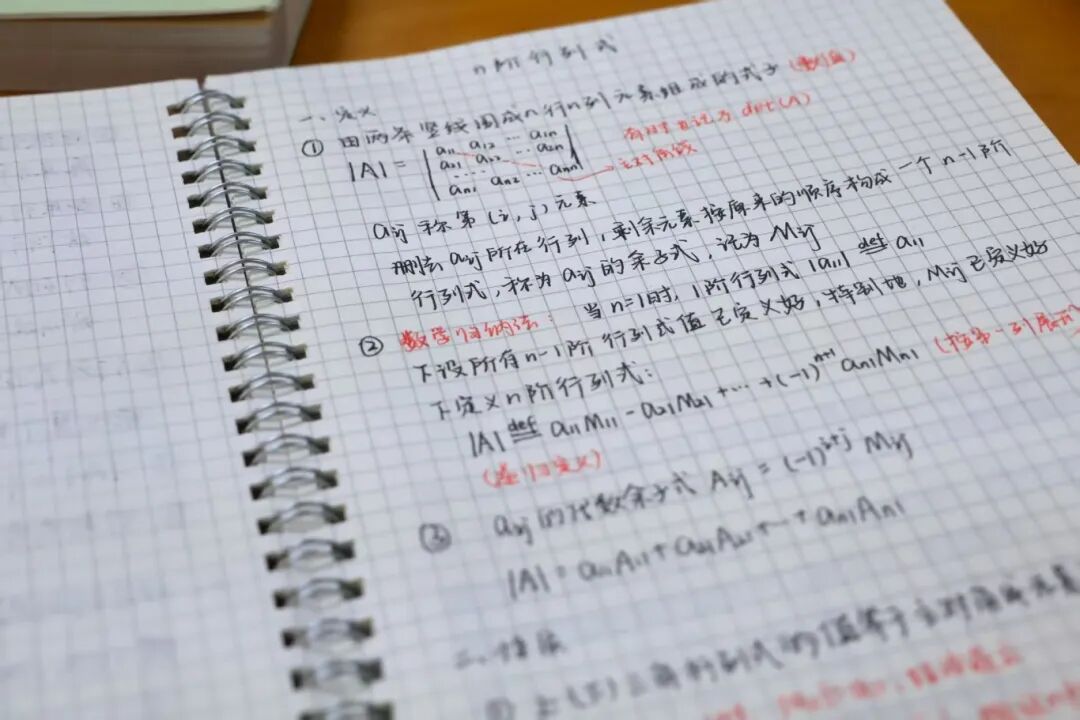 n阶行列式
一、定义
① 由两条竖线围成n行n列元素组成的式子(数值)
|A| = | a₁₁ a₁₂ … a₁ₙ | 有时也记为 det(A)
a₂₁ a₂₂ … a₂ₙ 主对角线
… …
aₙ₁ aₙ₂ … aₙₙ
aᵢⱼ 称第(i,j)元素
删去aᵢⱼ所在行列,剩余元素按原来的顺序构成一个n-1阶
行列式,称为aᵢⱼ的余子式,记为Mᵢⱼ
② 数学归纳法: 当n=1时,1阶行列式|a₁₁| def a₁₁
下设所有n-1阶行列式值已定义好,特别地,Mᵢⱼ已定义好
下定义n阶行列式:
|A| def a₁₁M₁₁ - a₂₁M₂₁ + … + (-1)ⁿ⁺¹ aₙ₁Mₙ₁ (按第一列展开)
(递归定义)
③ aᵢⱼ的代数余子式 Aᵢⱼ = (-1)ⁱ⁺ʲ Mᵢⱼ
|A| = a₁₁A₁₁ + a₂₁A₂₁ + … + aₙ₁Aₙ₁
二、性质
① 上(下)三角行列式的值等于主对角线元素